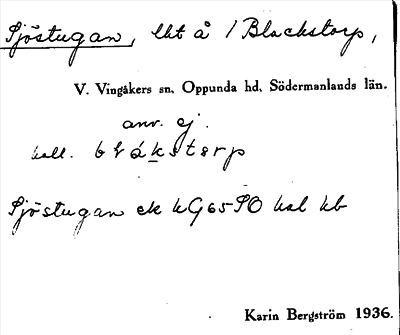 Sjöstugan, lht å / Blackstorp,
V. Vingåkers sn, Oppunda hd, Södermanlands län.
anv. ej.
kall.
Sjöstugan ek kG65 SO kal kb
Karin Bergström 1936.